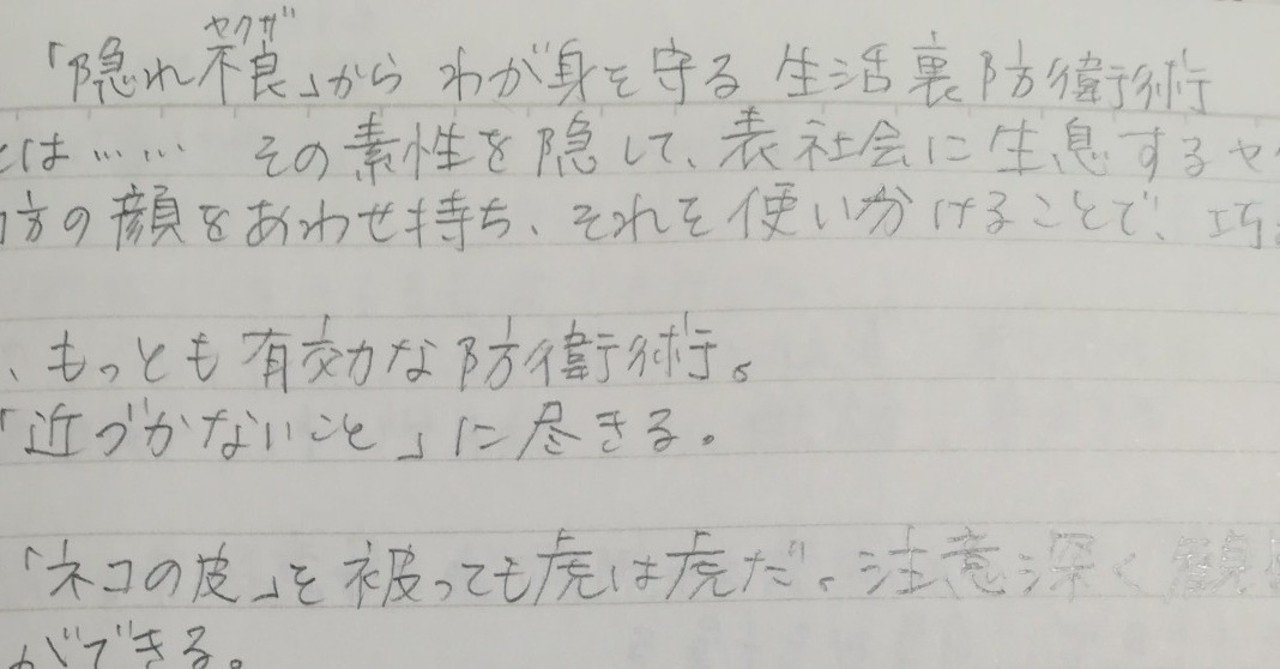 ヤクザ
「隠れ不良」からわが身を守る 生活裏防衛術
とは…… その素性を隠して、表社会に生息するヤ
方の顔をあわせ持ち、それを使いわけることで、巧
、もっとも有効な防衛術。
「近づかないこと」に尽きる。
「ネコの皮」を被っても虎は虎だ。注意深く観
ができる。